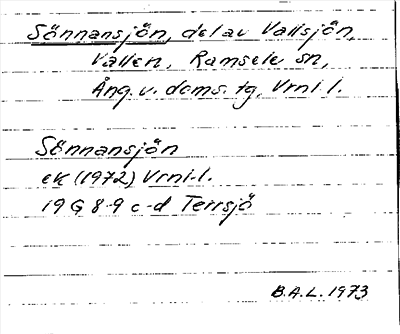 Sönnansjön, del av Vallsjön,
Vallen, Ramsele sn,
Ång. v. doms. tg, Vrnl.l.
Sönnansjön
ek (1972) Vrnl.l.
19 G 8-9 c-d Terrsjö
B.A.L. 1973